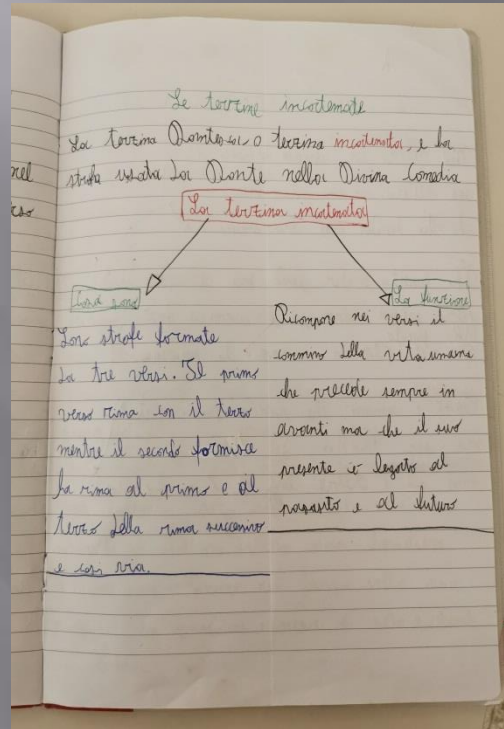 Le terzine incatenate
La terzina Dantesca, o terzina incatenata, e la
strofa usata da Dante nella Divina Comedia
nel
La terzina incatenata
Cosa sono
La funzione
Sono strofe formate
da tre versi. Il primo
verso rima con il terzo
mentre il secondo fornisce
la rima al primo e al
terzo della rima successivo
e così via.
Ricompone nei versi il
cammino della vita umana
che procede sempre in
avanti ma che il suo
presente è legato al
passato e al futuro